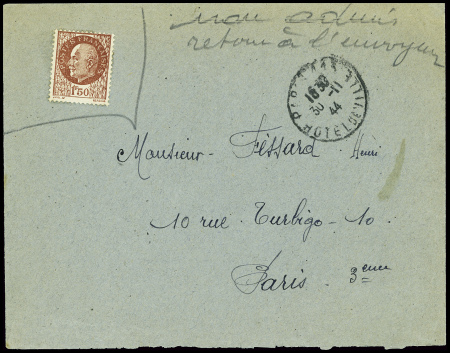 non admis
retour à l'envoyeur
POSTES FRANÇAISES
1F50
HOTEL DE VILLE
16 30
30 -11
44
Monsieur - Fessard Henri
10 rue Turbigo - 10
Paris. 3eme